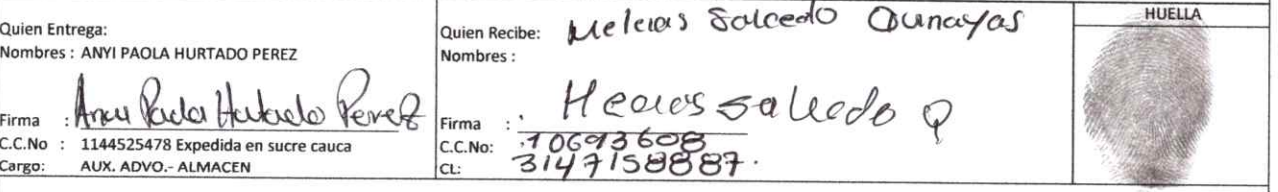 Quien Entrega:
Nombres : ANYI PAOLA HURTADO PEREZ
Firma : Anyi Paola Hurtado Perez
C.C.No : 1144525478 Expedida en sucre cauca
Cargo: AUX. ADVO.- ALMACEN
Quien Recibe: Melcias Salcedo Qunayas
Nombres :
Firma : Salcedo Q
C.C.No: 10693608
CL: 3147158887.
HUELLA